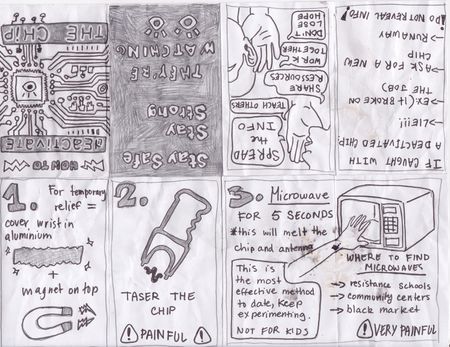 HOW TO
DEACTIVATE
THE CHIP
1.
For temporary
relief =
cover wrist in
aluminium
+
magnet on top
2.
TASER THE
CHIP
! PAINFUL !
3. Microwave
FOR 5 SECONDS
*this will melt the
chip and antenna
This is
the most
effective method
to date, Keep
experimenting.
NOT FOR KIDS
WHERE TO FIND
MICROWAVES
→ resistance schools
→ community centers
→ black market
! VERY PAINFUL
IF CAUGHT WITH
A DEACTIVATED CHIP
→ LIE!!!
→ EX: It BROKE ON
THE JOB
→ ASK FOR A NEW
CHIP
→ RUNAWAY
¡DO NOT REVEAL INFO!
SPREAD
the
INFO
TEACH OTHERS
SHARE
RESOURCES
WORK
TOGETHER
DON'T
LOSE
HOPE
Stay Safe
Stay
Strong
THEY'RE
WATCHING